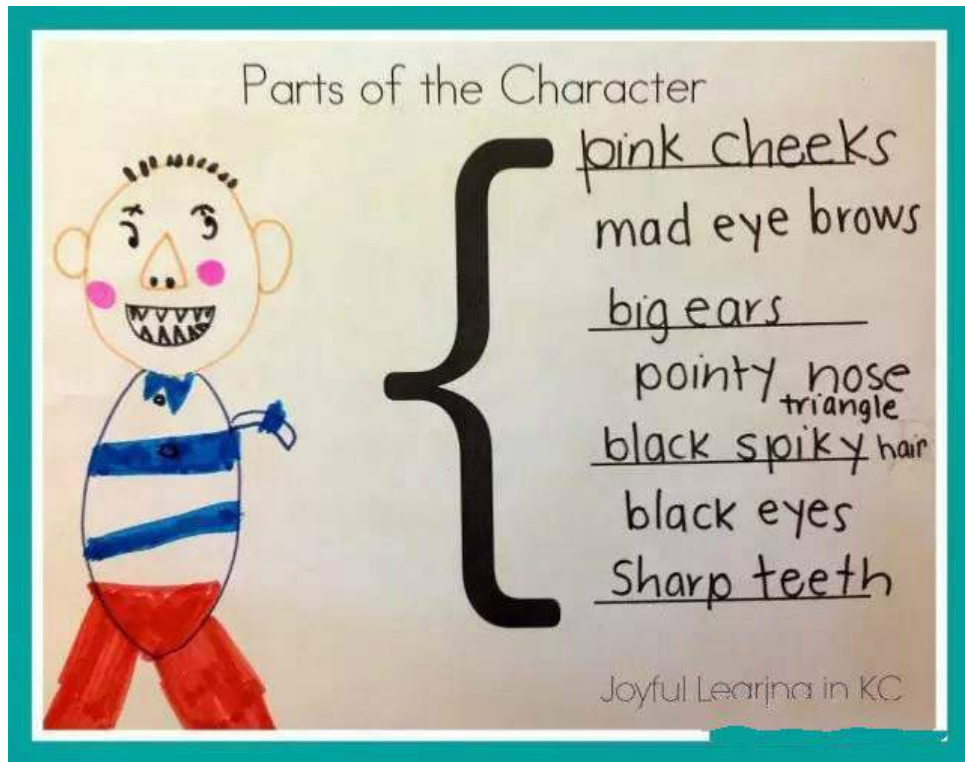 Parts of the Character
pink cheeks
mad eye brows
big ears
pointy nose
triangle
black spiky hair
black eyes
Sharp teeth
Joyful Learing in KC